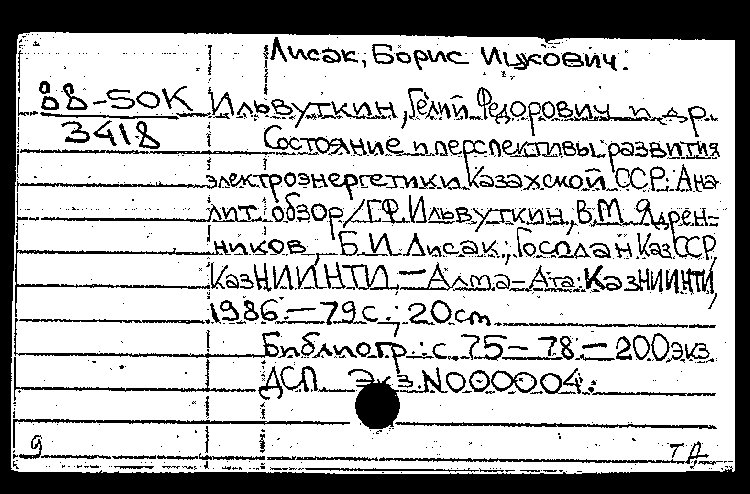 Лисак, Борис Ицкович.
88-50К
3418
Ильвуткин, Гелий Федорович и др.
Состояние и перспективы развития
электроэнергетики Казахской ССР: Ана
лит. обзор/Г.Ф. Ильвуткин, В.М. Ядрен-
ников, Б.И. Лисак; Госплан КазССР,
КазНИИНТИ. — Алма-Ата: КазНИИНТИ,
1986. — 79 с.; 20 cm
Библиогр.: с. 75-78. — 200 экз.
ДСП Экз. N000004.
9
ТА